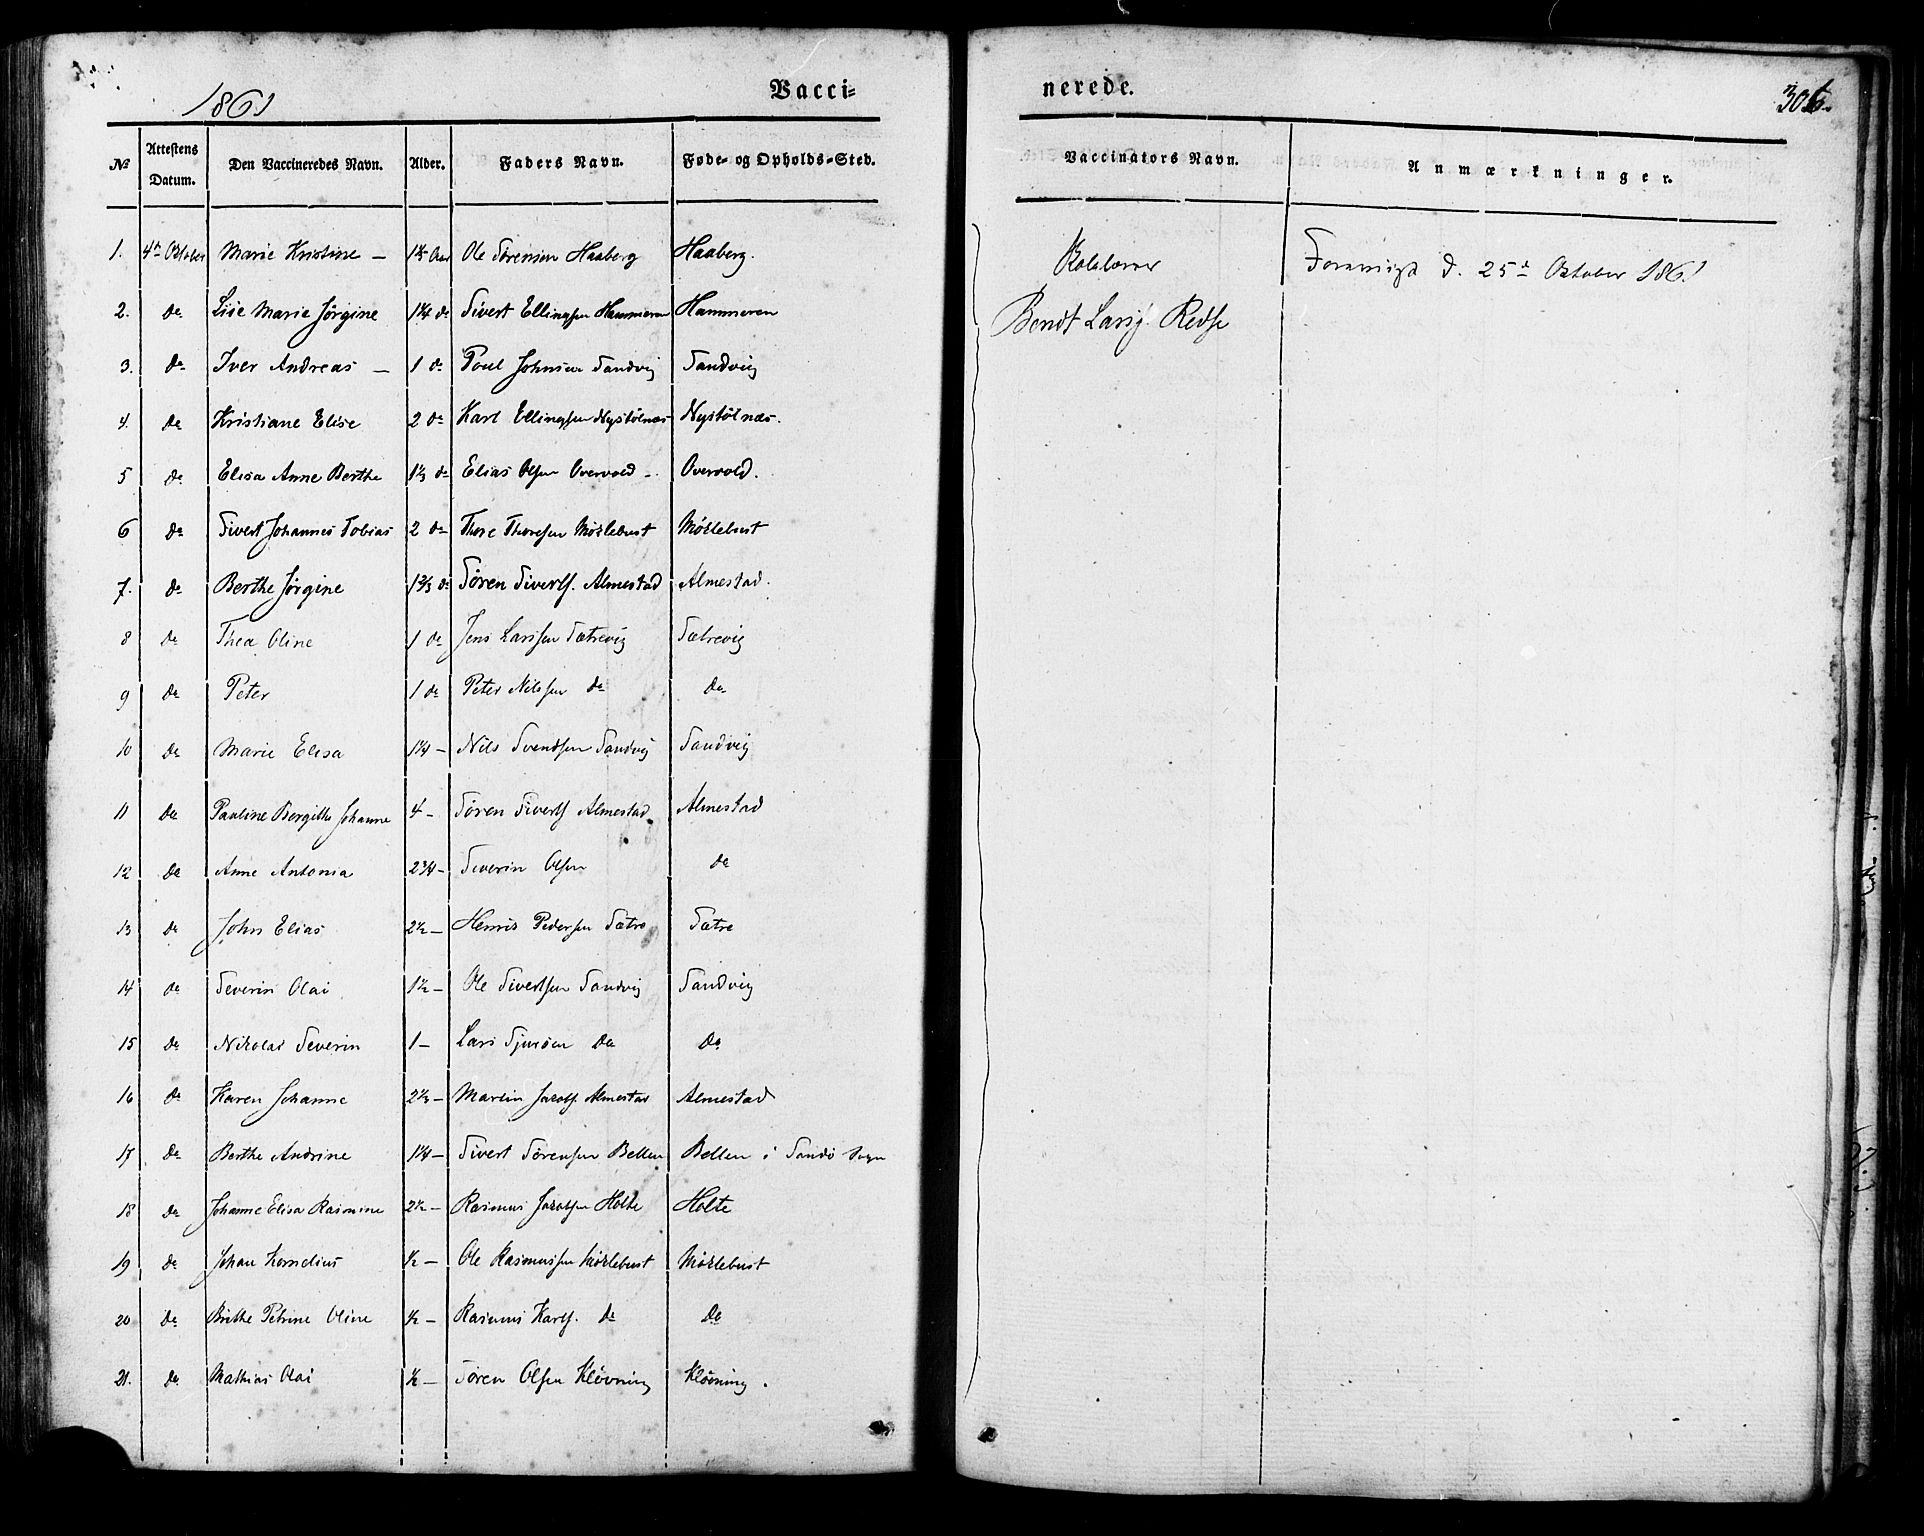 1861
Vacci-
nerede.
№ Attestens Datum. Den Vaccineredes Navn. Alder. Faders Navn. Føde- og Opholds-Sted.
Vaccinators Navn. Anmærkninger.
1. 4de Oktober Marie Kristine — Aar Ole Sørensen Haaberg Haaberg.
2. do Lise Marie Jørgine 1¼ do Sivert Ellingsen Hammeren Hammeren
3. do Iver Andreas — 1 do Poul Johnsen Sandvig Sandvig
4. do Kristiane Elise 2 do Karl Ellingsen Nystølnæs Nystølnæs.
5 do Elisa Anne Berthe 1⅓ do Elias Olsen Overvold - Overvold.
6 do Sivert Johannes Tobias 2 do Thore Thoresen Mørlebust Mørlebust
7. do Berthe Jørgine 1⅔ do Søren Siverts. Almestad Almestad.
8 do Thea Oline 1 do Jens Larssen Sætrevig Sætrevig
9 do Peter 1 do Peter Nilssen do do
10 do Marie Elisa 1¼ — Nils Svendsen Sandvig Sandvig
11 do Pauline Bergitte Johanne 4 — Søren Siverts Almestad. Almestad
12 do Anne Antonia 2¾ — Severin Olsen do
13 do John Elias 2½ — Henrik Pedersen Sætre Sætre
14 do Severin Olai 1½ — Ole Sivertsen Sandvig Sandvig
15 do Nikolai Severin 1 — Lars Sjursen do do
16 do Karen Johanne 2⅓ — Martin Jacobs. Almestad Almestad
17 do Berthe Andrine 1¼ — Sivert Sørensen Bellen Bellen i Sandø Sogn
18 do Johanne Elisa Rasmine 2½ — Rasmus Jacobsen Holte Holte
19 do Johan Kornelius ½ — Ole Rasmussen Mørlebust Mørlebust
20 do Brithe Petrine Oline ½ — Rasmus Karls. do do
21. do Mathias Olai ½ — Søren Olsen Kløvning Kløvning.
Forevist d. 25de Oktober 1861
Bendt Larsj. Redse